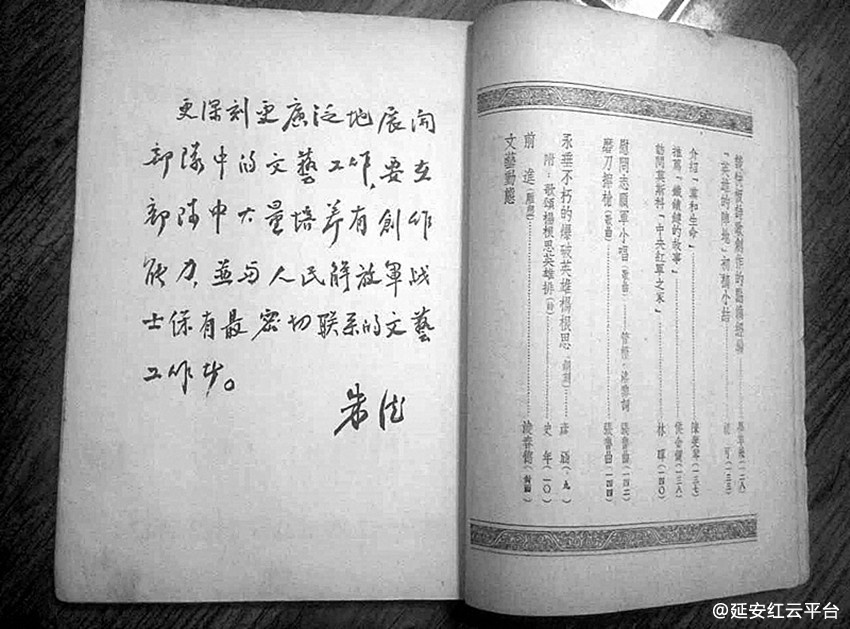 更深刻更廣泛地展開
部隊中的文藝工作,要在
部隊中大量培养有創作
能力,並与人民解放軍战
士保有最密切联系的文藝
工作者。
朱德
快板詩歌創作的點滴經驗……(一二八)
「英雄的陣地」初稿小結……可(一三三)
介紹「黨和生命」……陳斐琴(一三七)
推薦「鐵鎖鏈的故事」……侯金鏡(一三八)
訪問莫斯科「中央紅軍之家」……林暉(一四〇)
慰問志願軍小唱(歌曲)……管樺·詞 張魯曲(一四二)
磨刀擦槍(歌曲)……張魯曲(一四四)
永垂不朽的爆破英雄楊根思……彥涵(九)
附:歌頌楊根思英雄排(詩)……史年(一〇)
前進(雕塑)……凌春德(封面)
文藝動態
@延安红云平台